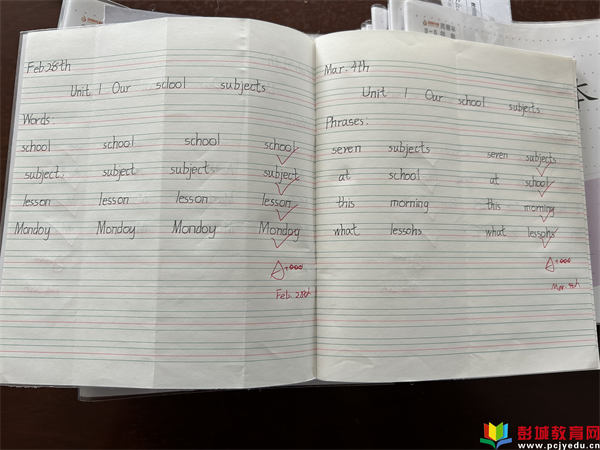 Feb 28th
Unit 1 Our sclool subjects
Words:
school school school school
subject subject subject subject
lesson lesson lesson lesson
Monday Monday Monday Monday
A+
Feb. 28th
Mar. 4th
Unit 1 Our school subjects
Phrases:
seven subjects seven subjects
at school at school
this morning this morning
what lessons what lessons
A+
Mar. 4th
彭城教育网
www.pcjyedu.cn